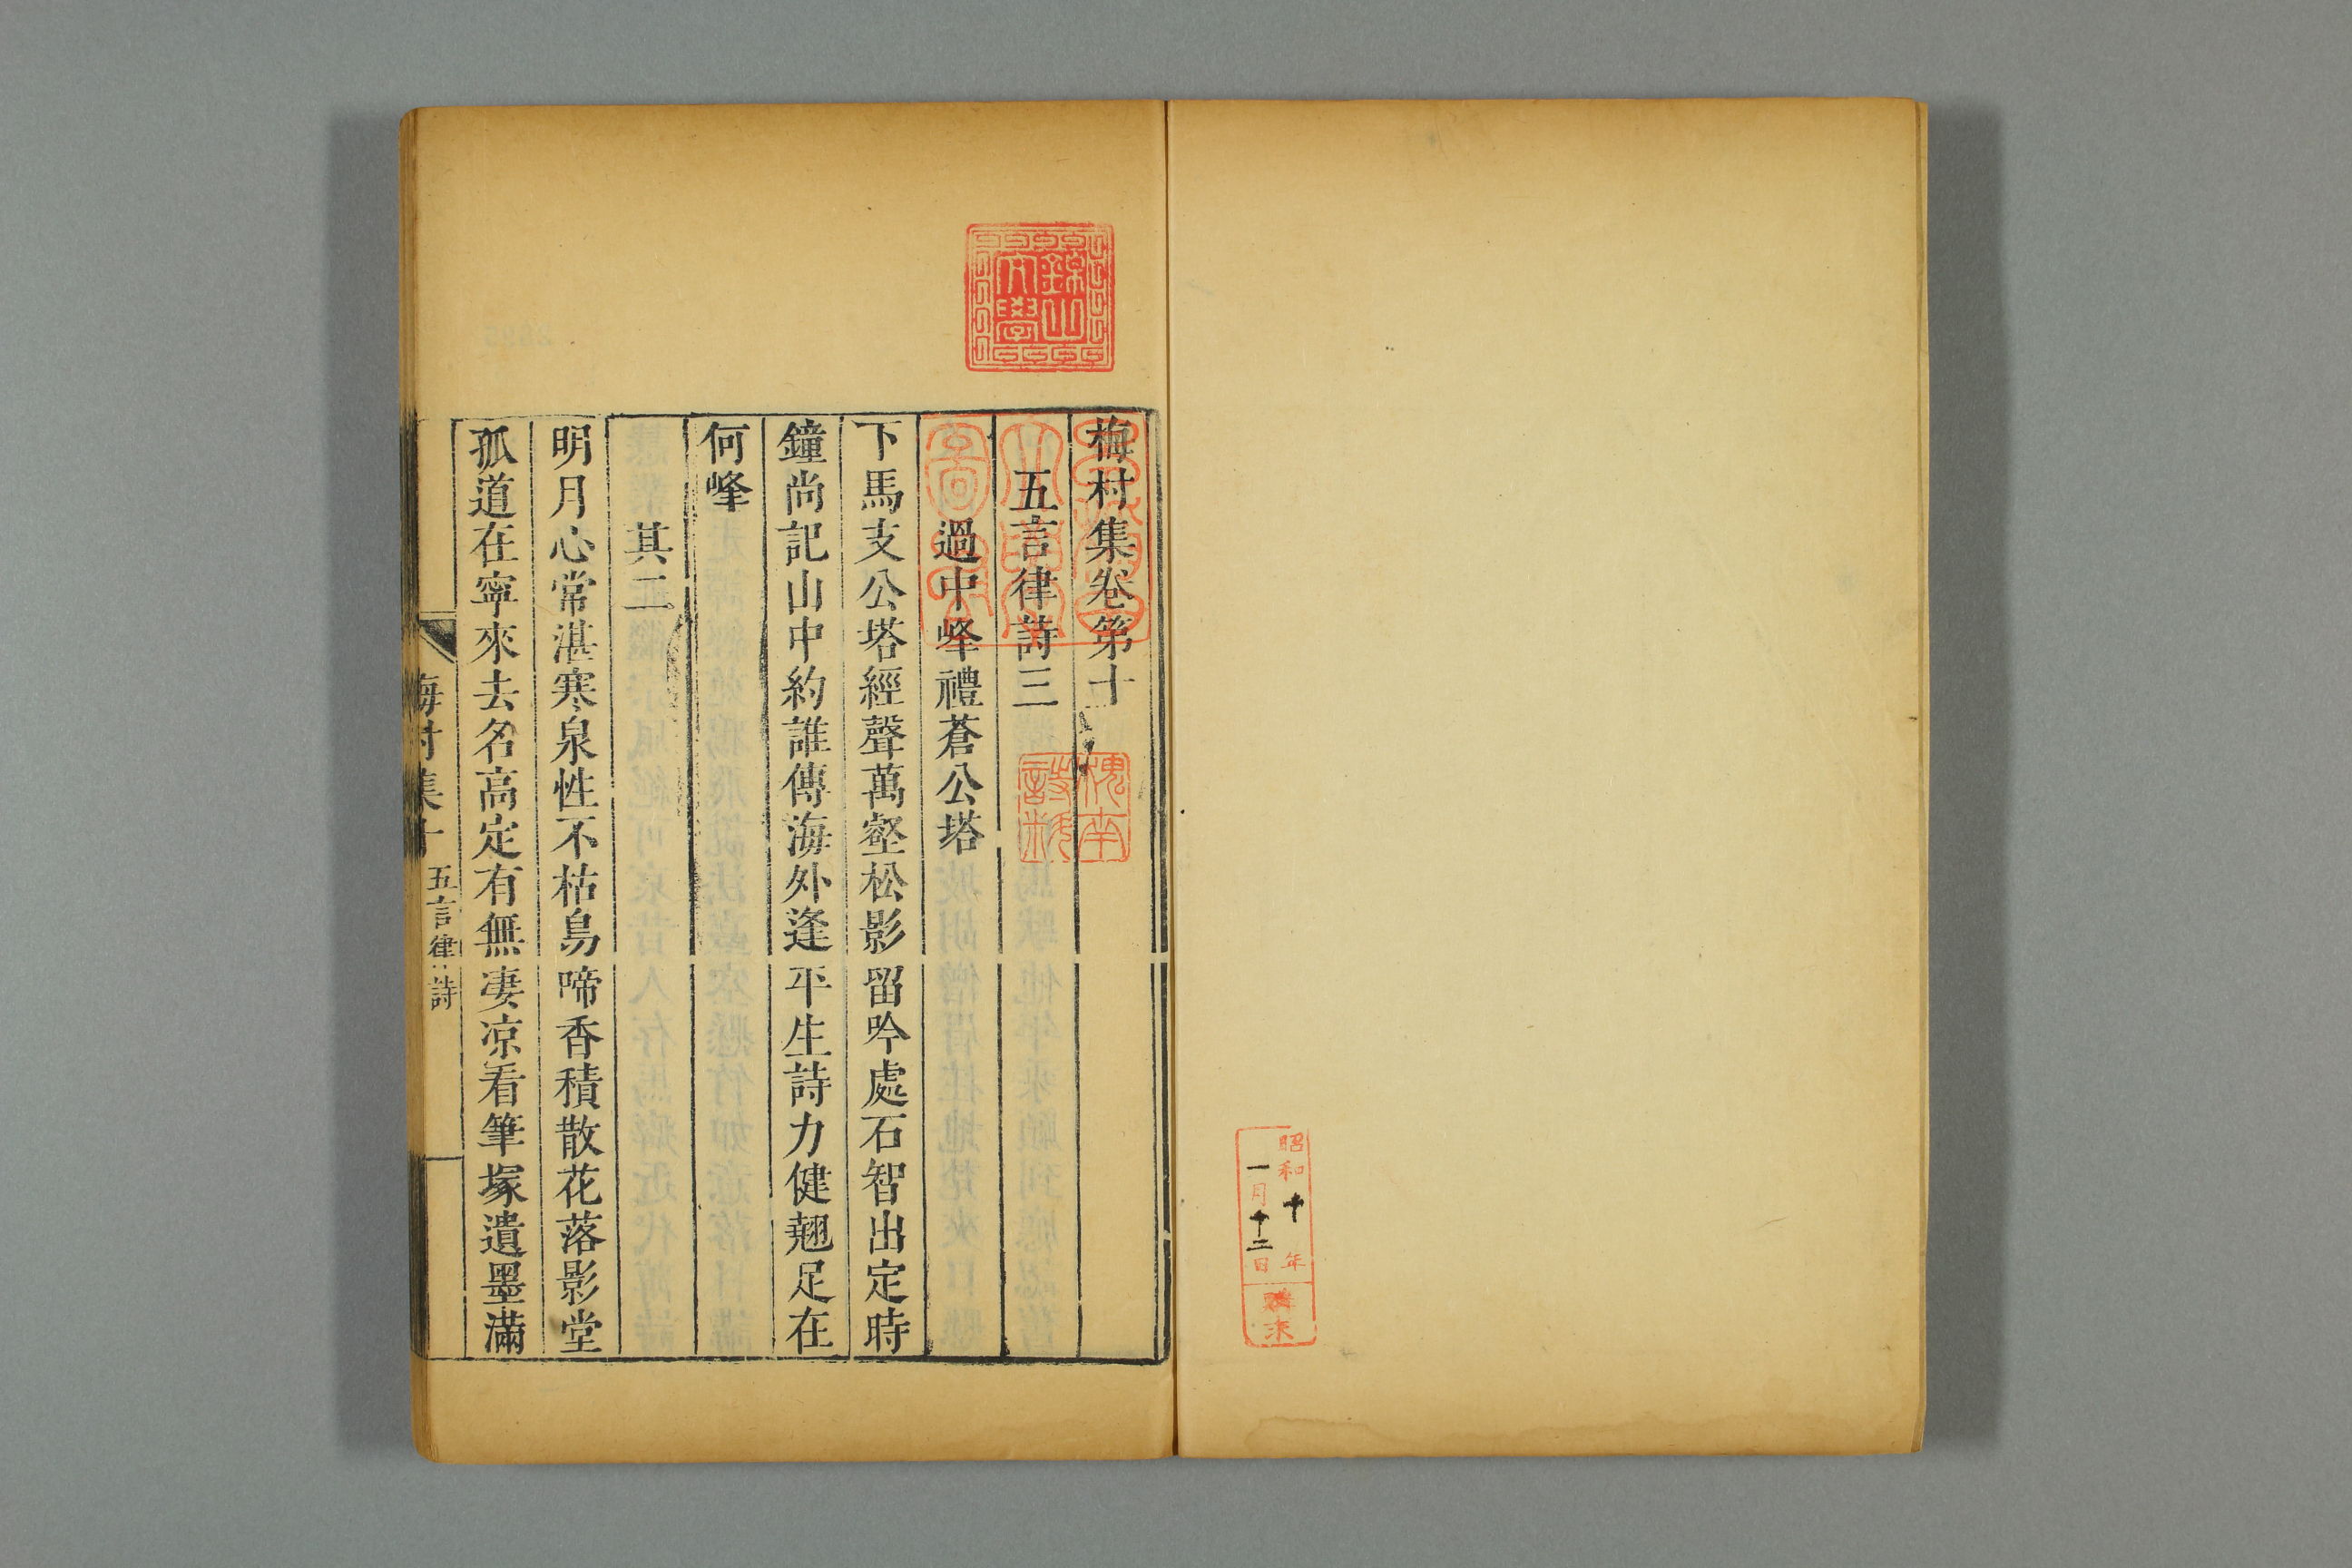 昭和十年
一月十二日
購来
梅村集卷第十
五言律詩三
過中峰禮蒼公塔
下馬支公塔經聲萬壑松影留吟處石智出定時
鐘尚記山中約誰傳海外逢平生詩力健翹足在
何峰
其二
明月心常湛寒泉性不枯鳥啼香積散花落影堂
孤道在寧來去名高定有無凄凉看筆塚遺墨滿
梅村集十
五言律詩
槐南
詩料